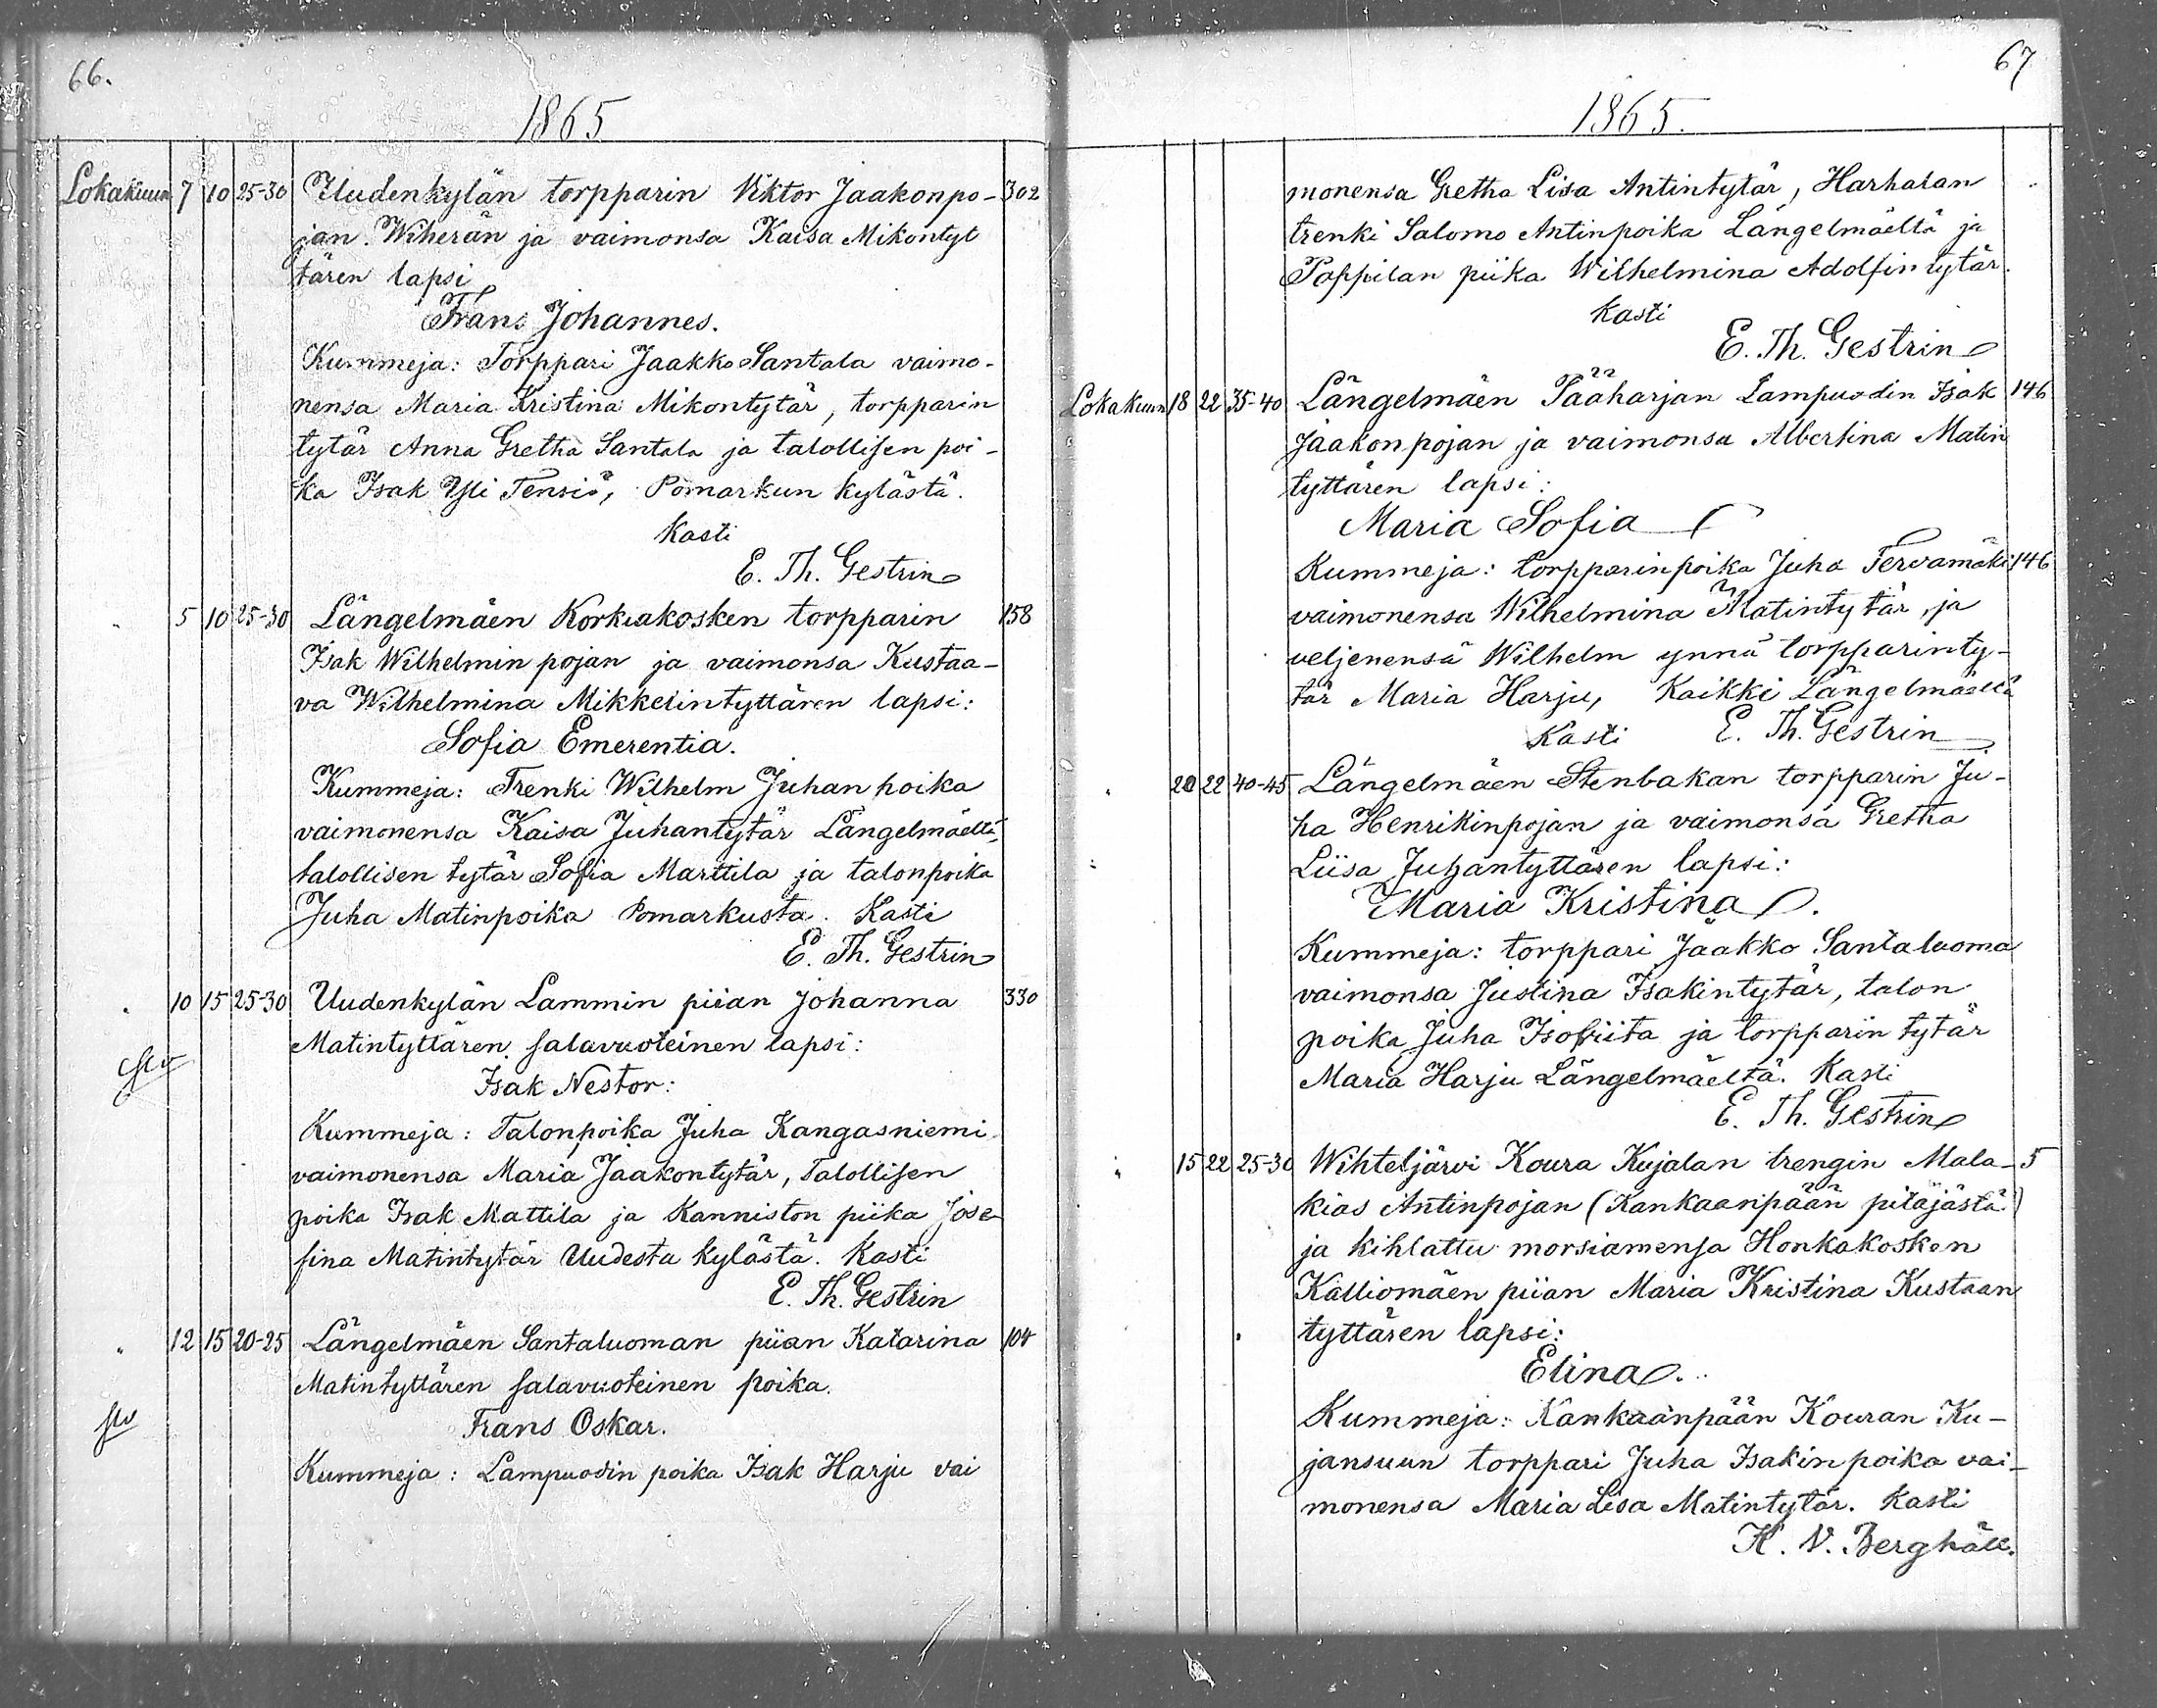 66.
1865
Lokakuun 7 10 25-30 Uudenkylän torpparin Viktor Jaakonpo- 302
jan Wiherän ja vaimonsa Kaisa Mikontyt
tären lapsi
Frans Johannes.
Kummeja: Torppari Jaakko Santala vaimo-
nensa Maria Kristina Mikontytär, torpparin
tytär Anna Gretha Santala ja talollisen poi-
ka Isak Yli Tensiö, Pomarkun kylästä.
Kasti
E. Th. Gestrin
" 5 10 25-30 Längelmäen Korkiakosken torpparin 158
Isak Wilhelmin pojan ja vaimonsa Kustaa-
va Wilhelmina Mikkelintyttären lapsi:
Sofia Emerentia.
Kummeja: Trenki Wilhelm Juhan poika
vaimonensa Kaisa Juhantytär Längelmäeltä,
talollisen tytär Sofia Marttila ja talonpoika
Juha Matinpoika Pomarkusta. Kasti
E. Th. Gestrin
" 10 15 25-30 Uudenkylän Lammin piian Johanna 330
Matintyttären salavuoteinen lapsi:
Isak Nestor:
Kummeja: Talonpoika Juha Kangasniemi
vaimonensa Maria Jaakontytär, Talollisen
poika Isak Mattila ja Kanniston piika Jose-
fina Matintytär Uudesta kylästä. Kasti
E. Th. Gestrin
" 12 15 20-25 Längelmäen Santaluoman piian Katarina 104
Matintyttären salavuoteinen poika.
Frans Oskar.
Kummeja: Lampuodin poika Isak Harju vai
67
1865.
monensa Gretha Lisa Antintytär, Harhalan
trenki Salomo Antinpoika Längelmäeltä ja
Pappilan piika Wilhelmina Adolfintytär.
Kasti
E. Th. Gestrin
Lokakuun 18 22 35-40 Längelmäen Pääharjan Lampuodin Isak 146
Jaakonpojan ja vaimonsa Albertina Matin
tyttären lapsi:
Maria Sofia
Kummeja: torpparinpoika Juha Tervamäki 146
vaimonensa Wilhelmina Matintytär, ja
veljenensä Wilhelm ynnä torpparinty-
tär Maria Harju, Kaikki Längelmäeltä
Kasti E. Th. Gestrin
" 20 22 40-45 Längelmäen Stenbakan torpparin Ju-
ha Henrikinpojan ja vaimonsa Gretha
Liisa Juhantyttären lapsi:
Maria Kristina.
Kummeja: torppari Jaakko Santaluoma
vaimonsa Justina Isakintytär, talon
poika Juha Isofiita ja torpparin tytär
Maria Harju Längelmäeltä. Kasti
E. Th. Gestrin
" 15 22 25-30 Wihteljärvi Koura Kujalan trengin Mala- 5
kias Antinpojan (Kankaanpään pitäjästä)
ja kihlattu morsiamensa Honkakosken
Kalliomäen piian Maria Kristina Kustaan
tyttären lapsi:
Elina.
Kummeja: Kankaanpään Kouran Ku-
jansuun torppari Juha Isakinpoika vai-
monensa Maria Lisa Matintytär. Kasti
K. V. Berghäll.